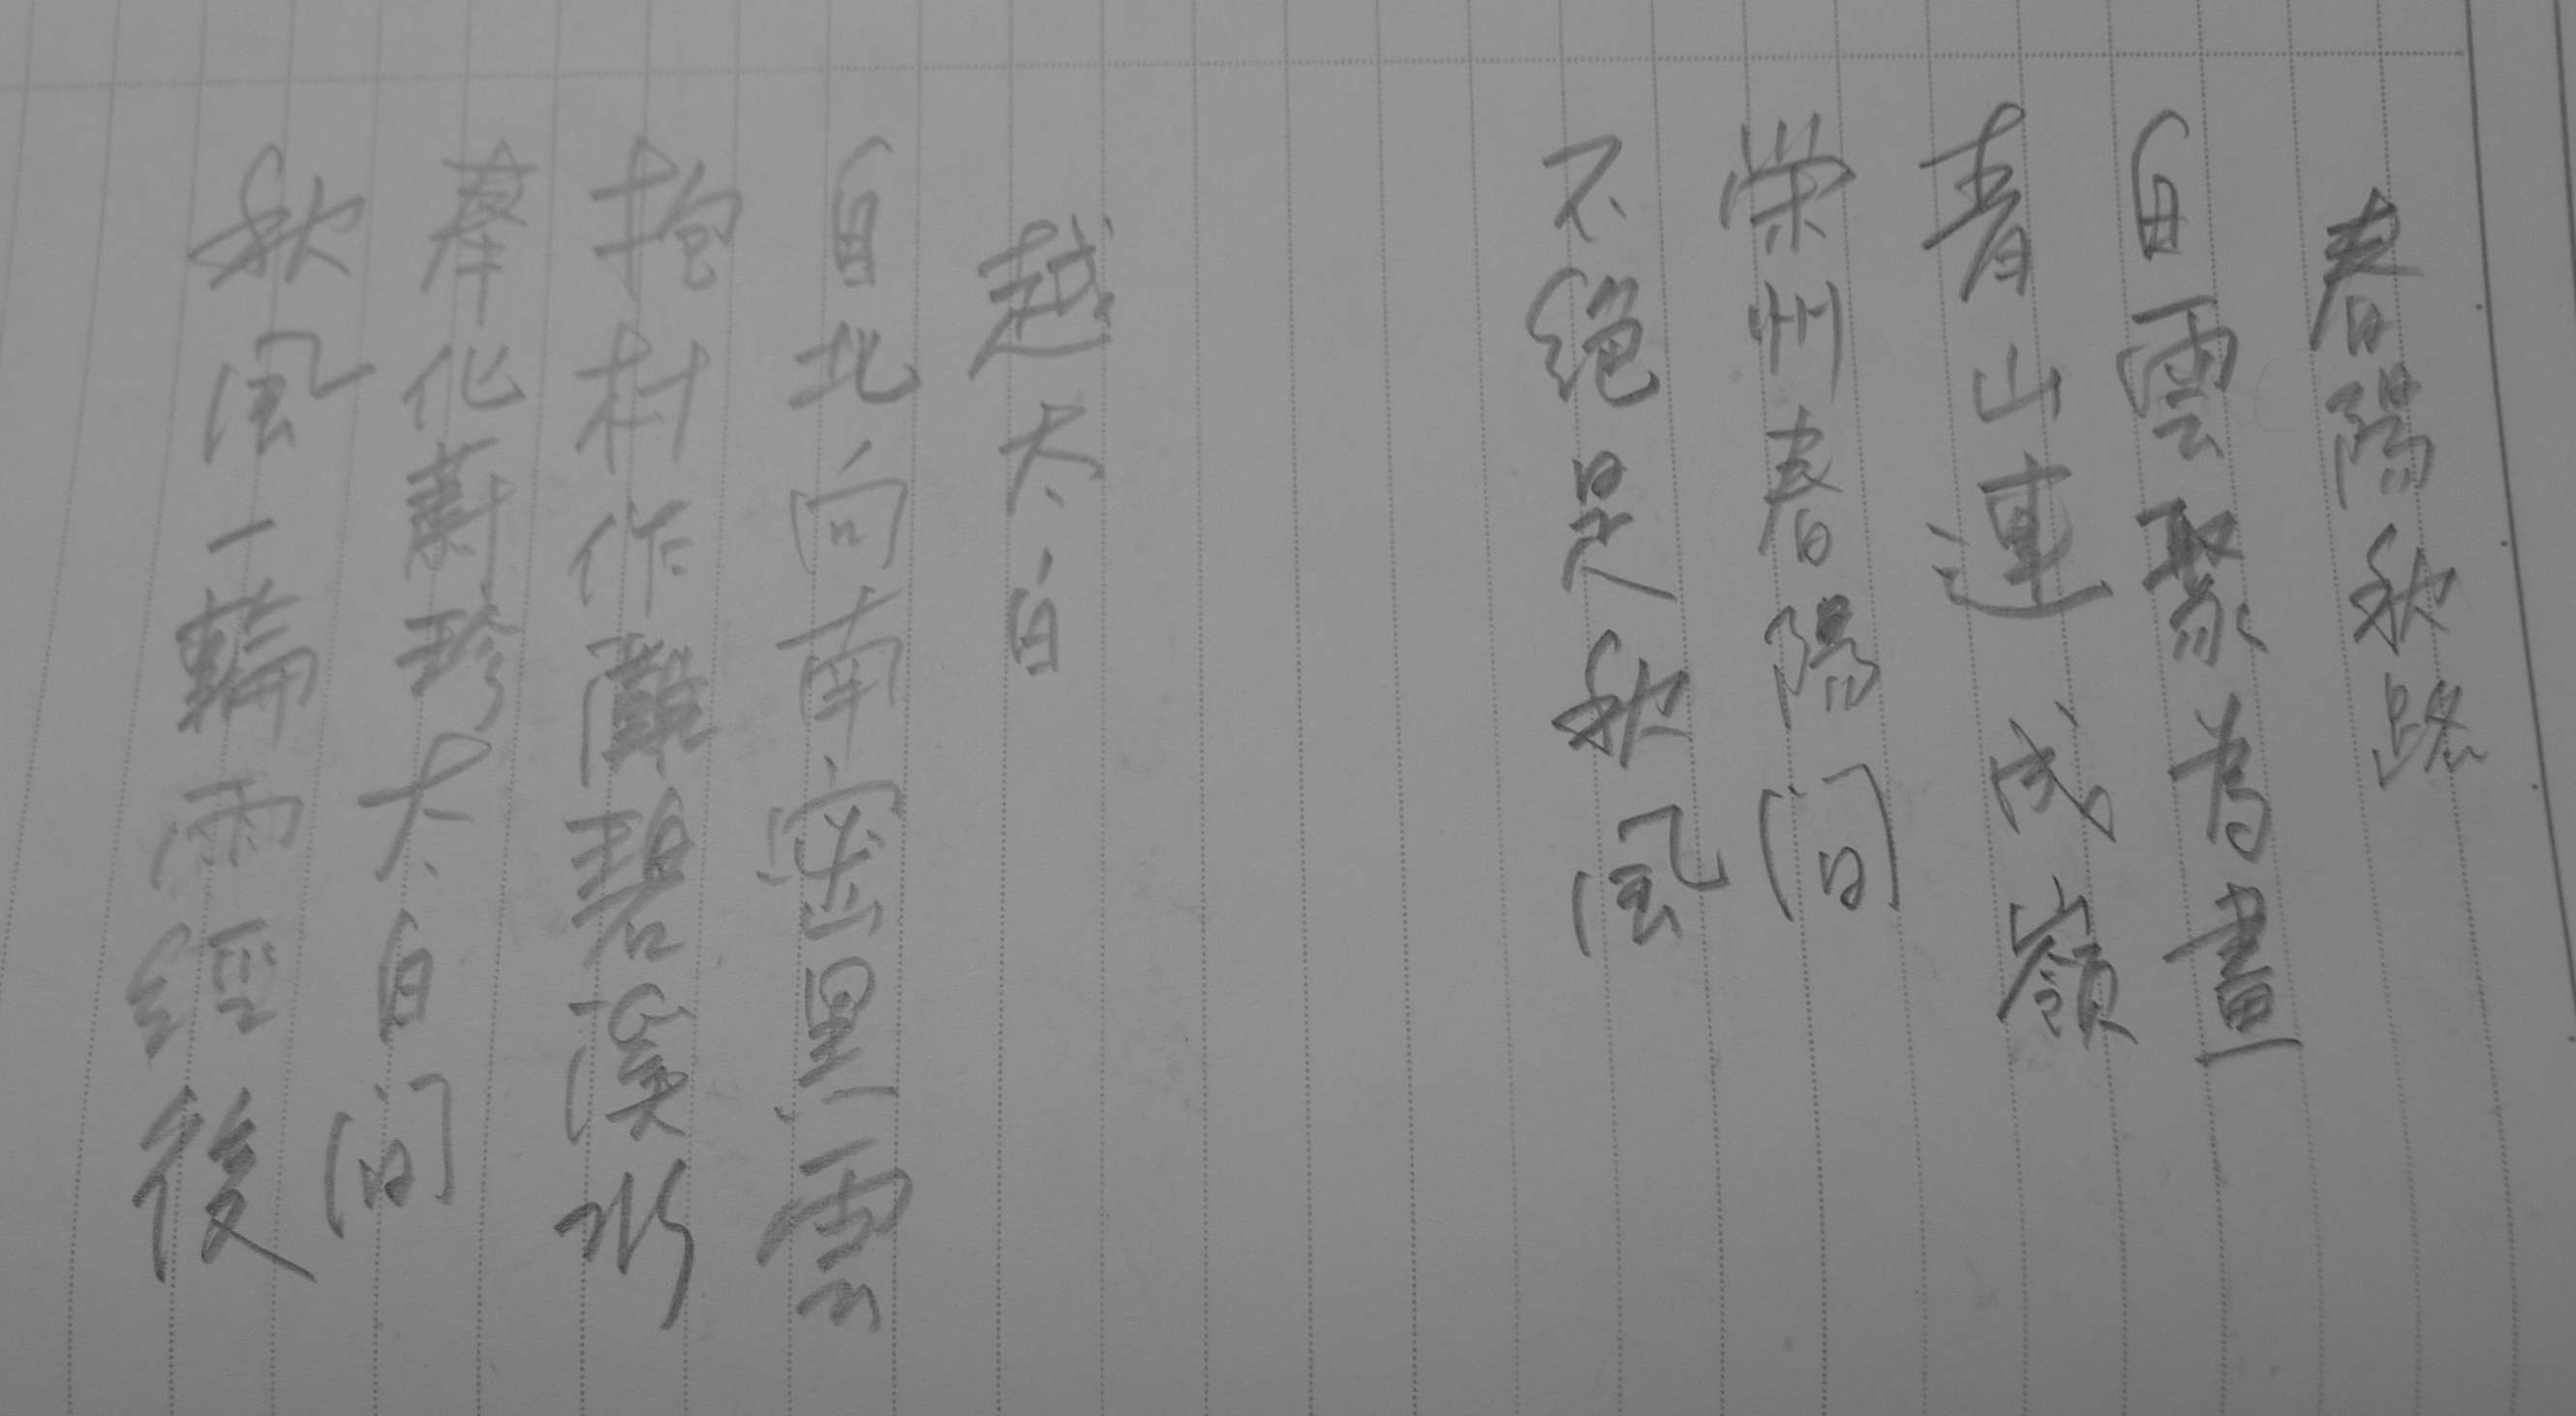 春陽秋路
白雲聚為畫
青山連成嶺
榮州春陽間
不絕是秋風
越太白
自北向南密黑雲
抱村作灘碧溪水
奉化蔚珍太白間
秋風一輪雨經後